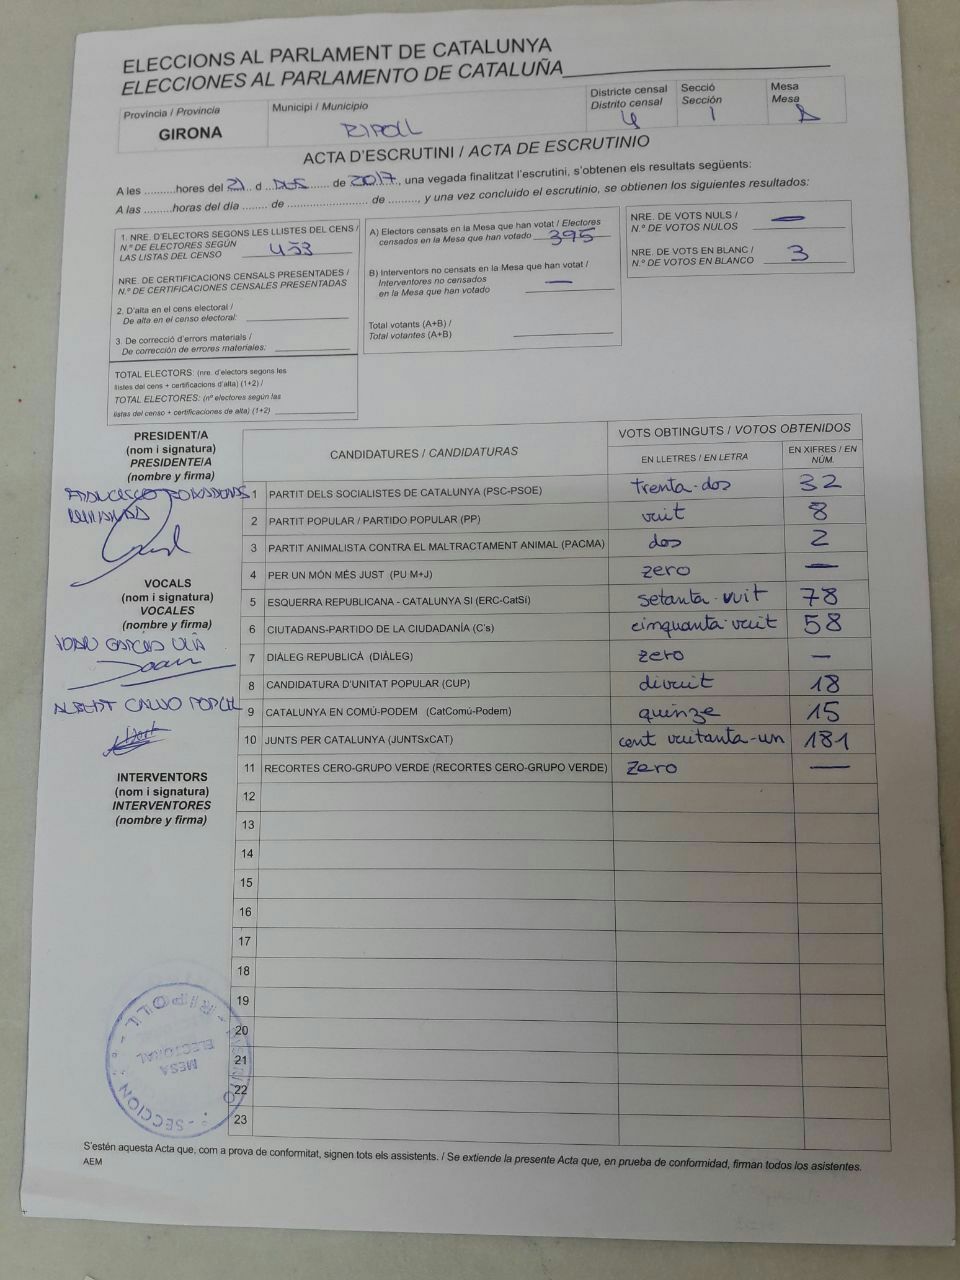 ELECCIONS AL PARLAMENT DE CATALUNYA
ELECCIONES AL PARLAMENTO DE CATALUÑA
Província / Provincia
GIRONA
Municipi / Municipio
RIPOLL
Districte censal
Distrito censal
4
Secció
Sección
1
Mesa
Mesa
ACTA D'ESCRUTINI / ACTA DE ESCRUTINIO
A les ..........hores del 21 d ... DES ...... de 2017, una vegada finalitzat l'escrutini, s'obtenen els resultats següents:
A las .........horas del día ........ de .......................... de ........., y una vez concluido el escrutinio, se obtienen los siguientes resultados:
1. NRE. D'ELECTORS SEGONS LES LLISTES DEL CENS /
N.º DE ELECTORES SEGÚN
LAS LISTAS DEL CENSO 453
NRE. DE CERTIFICACIONS CENSALS PRESENTADES /
N.º DE CERTIFICACIONES CENSALES PRESENTADAS
2. D'alta en el cens electoral /
De alta en el censo electoral:
3. De correcció d'errors materials /
De corrección de errores materiales:
TOTAL ELECTORS: (nre. d'electors segons les
llistes del cens + certificacions d'alta) (1+2) /
TOTAL ELECTORES: (nº electores según las
listas del censo + certificaciones de alta) (1+2)
A) Electors censats en la Mesa que han votat / Electores
censados en la Mesa que han votado 395
B) Interventors no censats en la Mesa que han votat /
Interventores no censados
en la Mesa que han votado —
Total votants (A+B) /
Total votantes (A+B)
NRE. DE VOTS NULS /
N.º DE VOTOS NULOS —
NRE. DE VOTS EN BLANC /
N.º DE VOTOS EN BLANCO 3
PRESIDENT/A
(nom i signatura)
PRESIDENTE/A
(nombre y firma)
FRANCESC
VOCALS
(nom i signatura)
VOCALES
(nombre y firma)
JOAN GARCÉS
Joan
ALBERT CALVO
INTERVENTORS
(nom i signatura)
INTERVENTORES
(nombre y firma)
CANDIDATURES / CANDIDATURAS
VOTS OBTINGUTS / VOTOS OBTENIDOS
EN LLETRES / EN LETRA
EN XIFRES / EN NÚM.
1 PARTIT DELS SOCIALISTES DE CATALUNYA (PSC-PSOE) trenta-dos 32
2 PARTIT POPULAR / PARTIDO POPULAR (PP) vuit 8
3 PARTIT ANIMALISTA CONTRA EL MALTRACTAMENT ANIMAL (PACMA) dos 2
4 PER UN MÓN MÉS JUST (PU M+J) zero —
5 ESQUERRA REPUBLICANA - CATALUNYA SI (ERC-CatSí) setanta-vuit 78
6 CIUTADANS-PARTIDO DE LA CIUDADANÍA (C's) cinquanta-vuit 58
7 DIÀLEG REPUBLICÀ (DIÀLEG) zero —
8 CANDIDATURA D'UNITAT POPULAR (CUP) divuit 18
9 CATALUNYA EN COMÚ-PODEM (CatComú-Podem) quinze 15
10 JUNTS PER CATALUNYA (JUNTSxCAT) cent vuitanta-un 181
11 RECORTES CERO-GRUPO VERDE (RECORTES CERO-GRUPO VERDE) zero —
12
13
14
15
16
17
18
19
20
21
22
23
RIPOLL
SECCION
MESA
ELECTORAL
S'estén aquesta Acta que, com a prova de conformitat, signen tots els assistents. / Se extiende la presente Acta que, en prueba de conformidad, firman todos los asistentes.
AEM